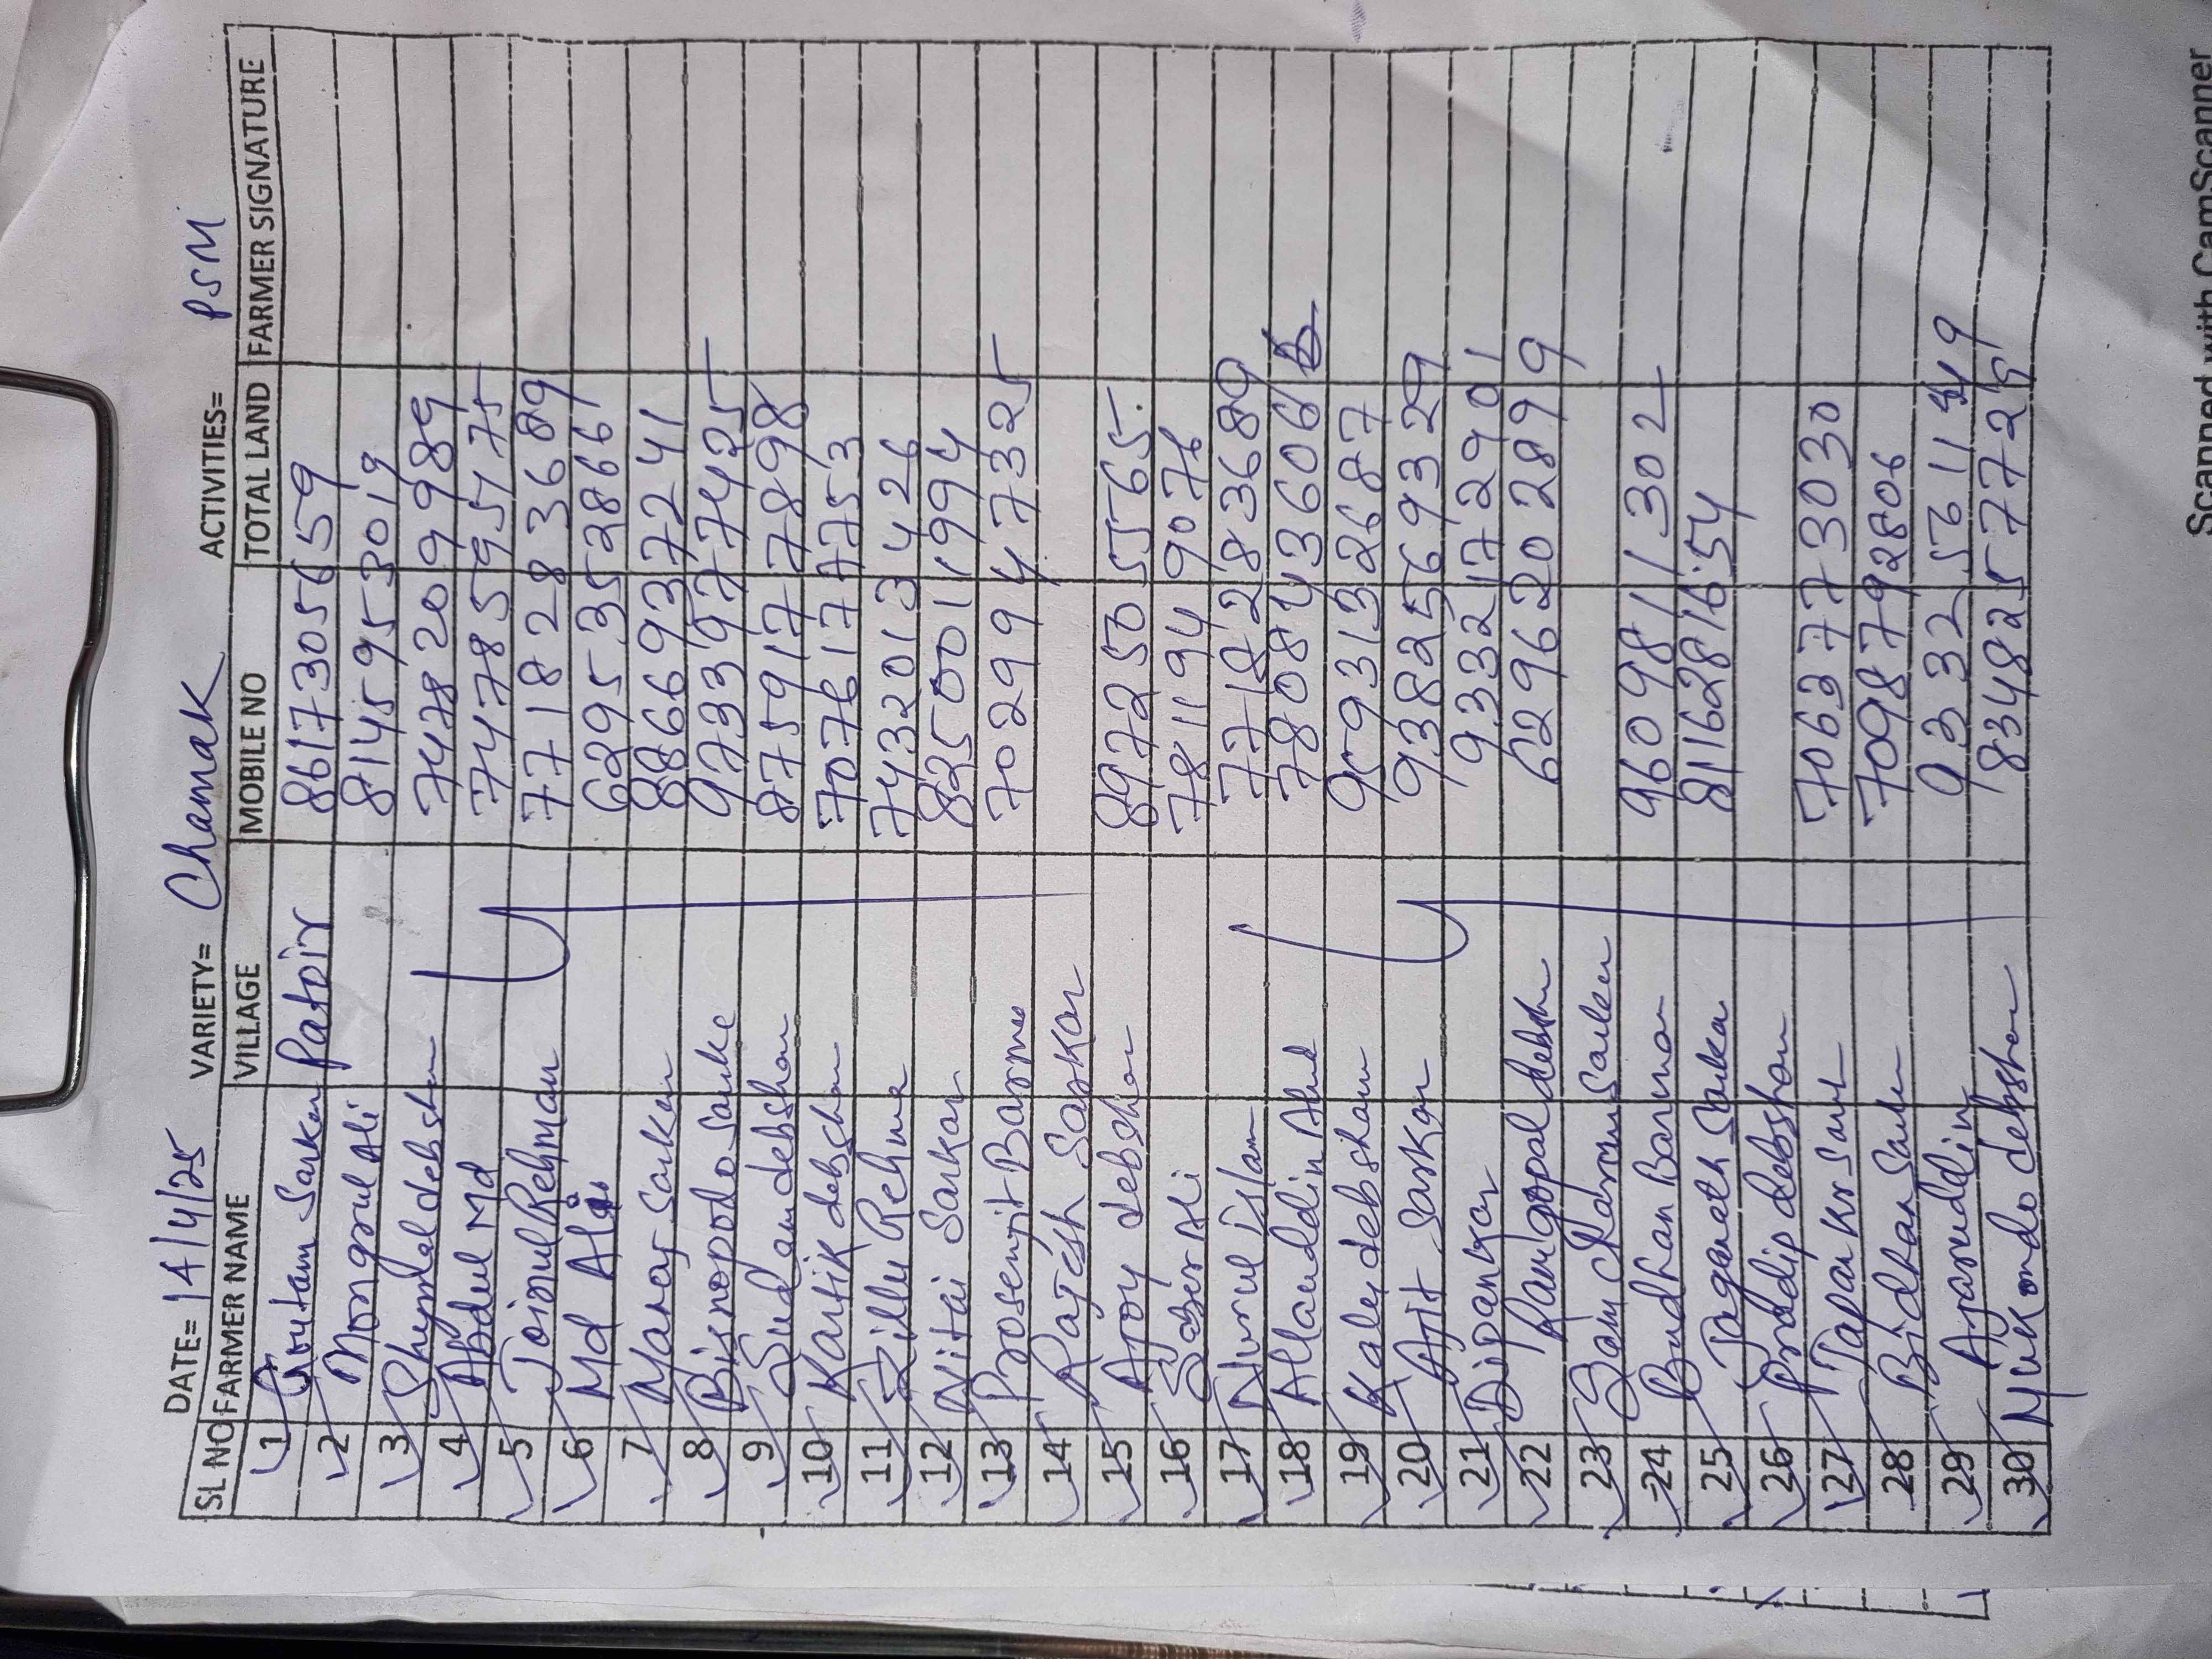 DATE= 14/4/25 VARIETY= Chamak ACTIVITIES= PSM
SL NO FARMER NAME VILLAGE MOBILE NO TOTAL LAND FARMER SIGNATURE
1 Goutam Sarkar Patoir 8617305659
2 Mongrul Ali 8145953019
3 Shymal debshar 7478209989
4 Abdul Md 7478595175
5 Joinul Rehman 7718283689
6 Md Ali 6295352866
7 Manoj Sarkar 8866937241
8 Bisnopodo Sarke 9733977425
9 Sudam debshar 8759177898
10 Kartik debshar 7076177753
11 Zillu Rehma 7432013426
12 Nitai Sarkar 8250011994
13 Prosenjit Barma 7029947325
14 Rajesh Sarkar
15 Ajoy debshar 8972505565
16 Sabir Ali 7811949076
17 Nurul Islam 7718283689
18 Allauddin 780843606
19 Kaley debsham 9093132687
20 Ajit Sarkar 9382569329
21 Dipankar 9332172901
22 Ramgopal debsh 6296202899
23 Sarkar
24 Budhan Barman 9609811302
25 Jaganath Sarka 8116281654
26 Prodip debsham
27 Tapan Kr Sark 7063773030
28 Bidhan Sark 7098792806
29 Ajaruddin 9332561149
30 Mukondo debshar 8348257729
Scanned with CamScanner